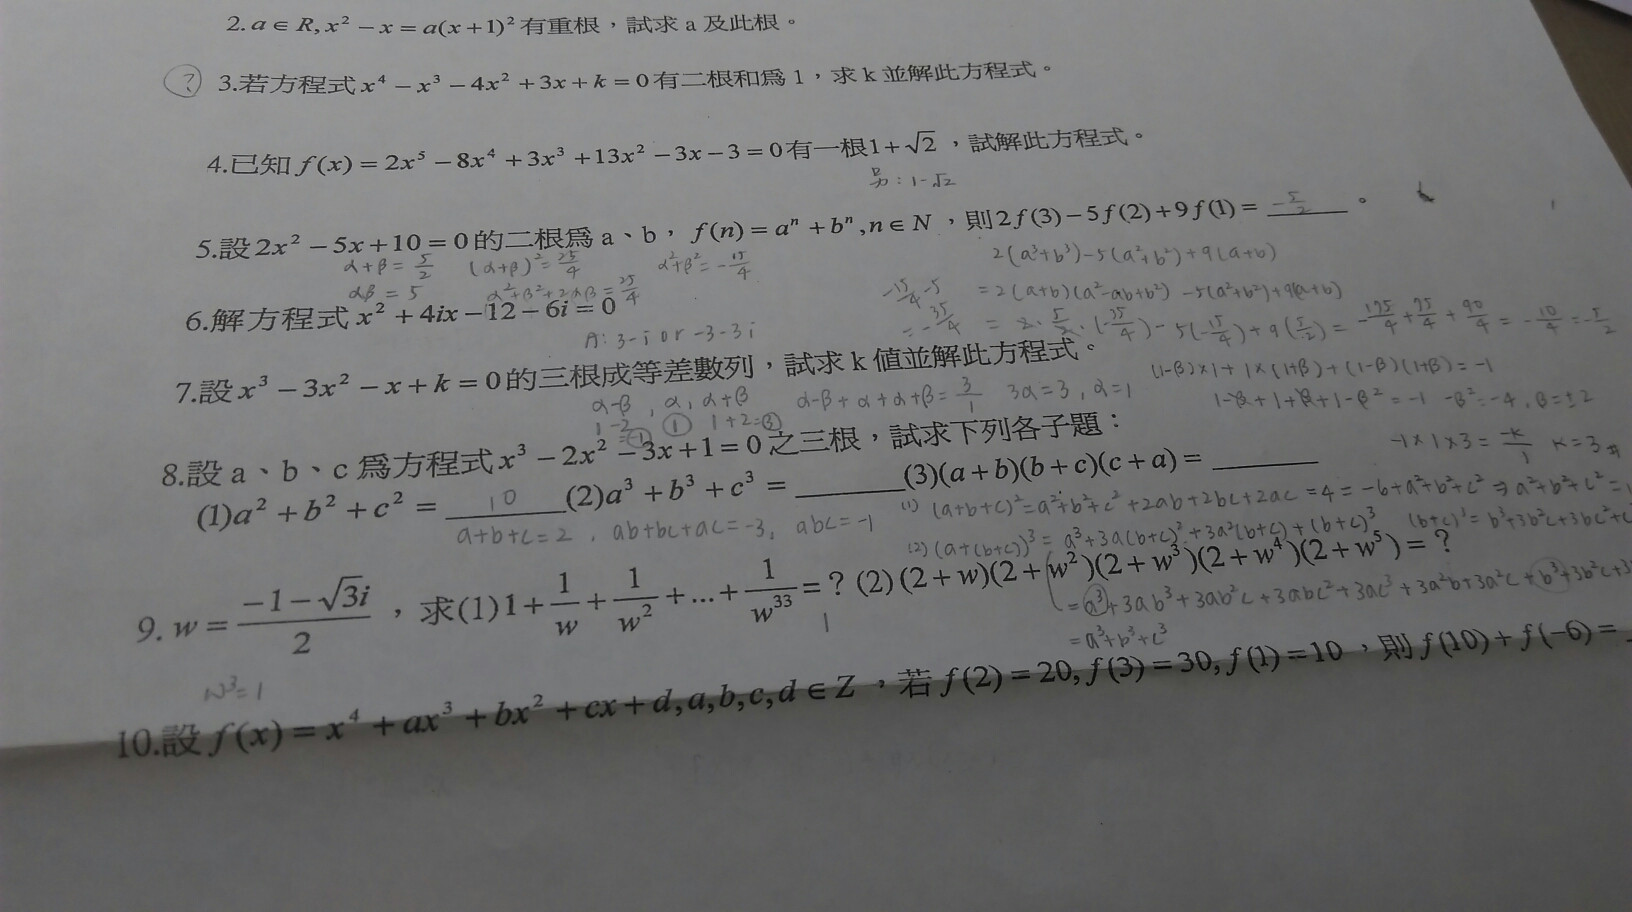 2. a ∈ R, x² − x = a(x+1)² 有重根，試求 a 及此根。
? 3.若方程式 x⁴ − x³ − 4x² + 3x + k = 0 有二根和為 1，求 k 並解此方程式。
4.已知 f(x) = 2x⁵ − 8x⁴ + 3x³ + 13x² − 3x − 3 = 0 有一根 1+√2，試解此方程式。
另：1-√2
5.設 2x² − 5x + 10 = 0 的二根為 a、b，f(n) = aⁿ + bⁿ, n ∈ N，則 2f(3) − 5f(2) + 9f(1) = -5/2。
α+β = 5/2 (α+β)² = 25/4 α²+β² = -15/4
αβ = 5 α²+β²+2αβ = 25/4
2(a³+b³)-5(a²+b²)+9(a+b)
-15/4 -5 = 2(a+b)(a²-ab+b²) -5(a²+b²)+9(a+b)
= -35/4 = 2·5/2·(-35/4) - 5(-15/4) + 9(5/2) = -175/4 + 75/4 + 90/4 = -10/4 = -5/2
6.解方程式 x² + 4ix − 12 − 6i = 0
A: 3-i or -3-3i
7.設 x³ − 3x² − x + k = 0 的三根成等差數列，試求 k 值並解此方程式。
α-β, α, α+β α-β+α+α+β = 3/1 3α=3, α=1
1-2=-1 1 1+2=3
(1-β)×1+1×(1+β)+(1-β)(1+β) = -1
1-β+1+β+1-β² = -1 -β²=-4, β=±2
-1×1×3 = -k/1 k=3
8.設 a、b、c 為方程式 x³ − 2x² − 3x + 1 = 0 之三根，試求下列各子題：
(1)a² + b² + c² = 10 (2)a³ + b³ + c³ = ______ (3)(a+b)(b+c)(c+a) = ______
a+b+c=2, ab+bc+ac=-3, abc=-1
(1) (a+b+c)² = a²+b²+c²+2ab+2bc+2ac = 4 = -6+a²+b²+c² ⇒ a²+b²+c² =
(2) (a+(b+c))³ = a³+3a(b+c)²+3a²(b+c)+(b+c)³ (b+c)³ = b³+3b²c+3bc²+c
= a³+3ab³+3ab²c+3abc²+3ac³+3a²b+3a²c+b³+3b²c+3
= a³+b³+c³
9. w = (−1−√3i)/2，求(1) 1 + 1/w + 1/w² + ... + 1/w³³ = ? (2) (2+w)(2+w²)(2+w³)(2+w⁴)(2+w⁵) = ?
1
w³=1
10.設 f(x) = x⁴ + ax³ + bx² + cx + d, a,b,c,d ∈ Z，若 f(2) = 20, f(3) = 30, f(1) = 10，則 f(10) + f(−6) =